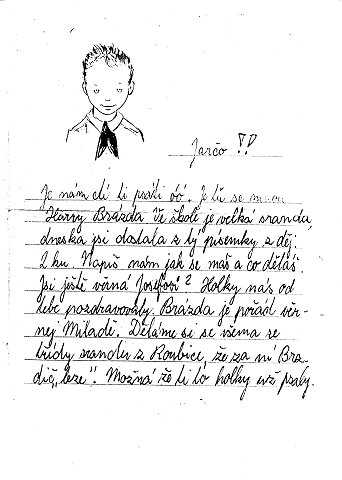 Jarčo !!
Je nám ctí ti psáti óó. Je tu se mnou
Harry Brázda. Ve škole je velká sranda,
dneska jsi dostala z tý písemky z děj.
2 ku. Napiš nám jak se máš a co děláš.
Jsi ještě věrná Josefovi? Holky nás od
tebe pozdravovaly. Brázda je pořád věr-
nej Miladě. Děláme si se všema ze
třídy srandu z Roubice, že za ní Bra-
dič "leze". Možná že ti to holky už psaly.